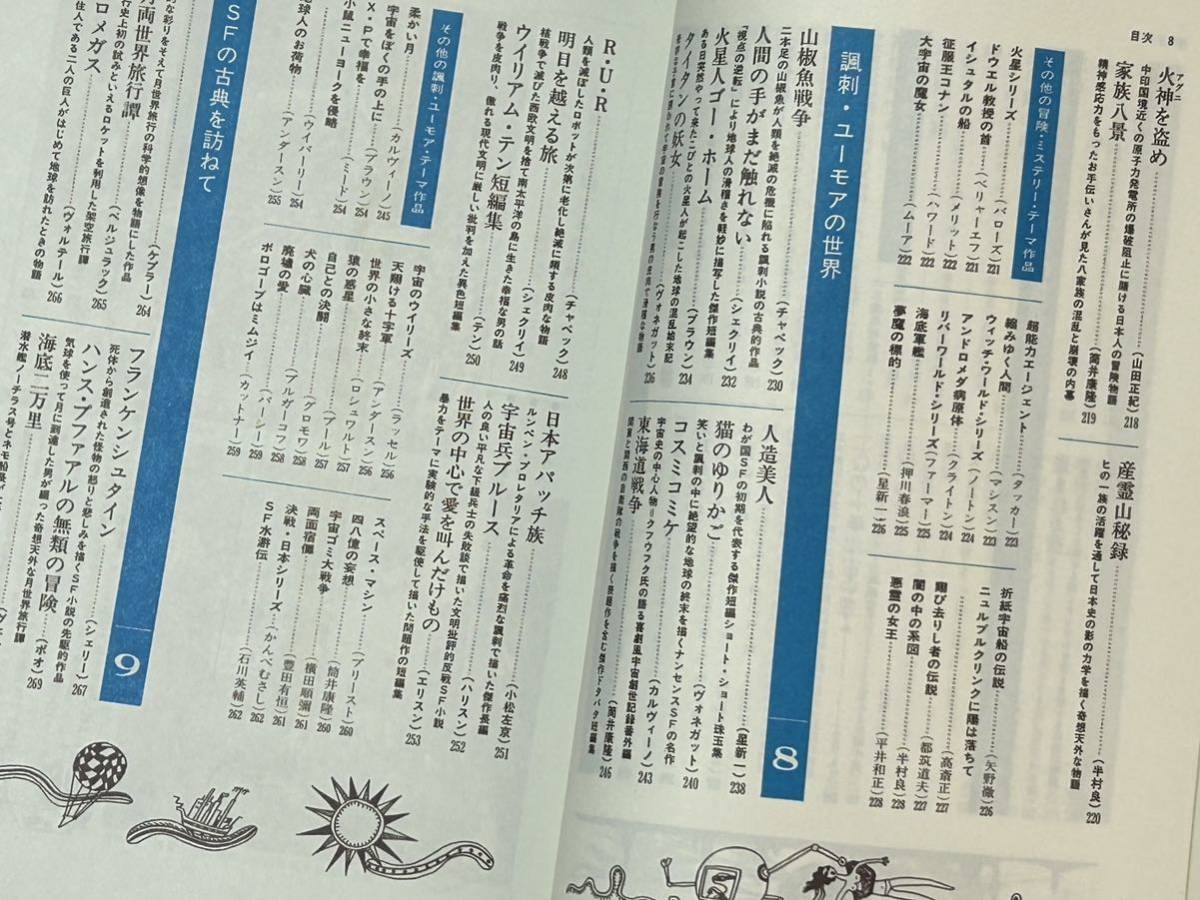 目次 8
火神を盗め……(山田正紀) 218
アグニ
中印国境近くの原子力発電所の爆破阻止に賭ける日本人の冒険物語
家族八景……(筒井康隆) 219
精神感応力をもったお手伝いさんが見た八家族の混乱と崩壊の内幕
産霊山秘録……(半村良) 220
ヒの一族の活躍を通して日本史の影の力学を描く奇想天外な物語
その他の冒険・ミステリー・テーマ作品
火星シリーズ……(バローズ) 221
ドウエル教授の首……(ベリャーエフ) 221
イシュタルの船……(メリット) 222
征服王コナン……(ハワード) 222
大宇宙の魔女……(ムーア) 222
超能力エージェント……(タッカー) 223
縮みゆく人間……(マシスン) 223
ウィッチ・ワールド・シリーズ……(ノートン) 224
アンドロメダ病原体……(クライトン) 224
リバーワールド・シリーズ(ファーマー) 225
海底軍艦……(押川春浪) 225
夢魔の標的……(星新一) 226
折紙宇宙船の伝説……(矢野徹) 226
ニュルブルクリンクに陽は落ちて
……(高斎正) 227
翔び去りしものの伝説……(都筑道夫) 227
闇の中の系図……(半村良) 228
悪霊の女王……(平井和正) 228
諷刺・ユーモアの世界 8
山椒魚戦争……(チャペック) 230
二本足の山椒魚が人類を絶滅の危機に陥れる諷刺小説の古典的作品
人間の手がまだ触れない……(シェクリイ) 232
「視点の逆転」により地球人の滑稽さを軽妙に描写した傑作短編集
火星人ゴー・ホーム……(ブラウン) 234
ある日突然やって来たこびとの火星人が起こした地球の混乱始末記
タイタンの妖女……(ヴォネガット) 236
人造美人……(星新一) 238
わが国SFの初期を代表する傑作短編ショート・ショート珠玉集
猫のゆりかご……(ヴォネガット) 240
笑いと諷刺の中に絶望的な地球の終末を描くナンセンスSFの名作
コスミコミケ……(カルヴィーノ) 243
宇宙史の中心人物=クフウフク氏の語る喜劇風宇宙創世記録番外編
東海道戦争……(筒井康隆) 246
関東と関西の自衛隊の戦争を描く表題作を含む傑作ドタバタ短編集
R・U・R……(チャペック) 248
人類を滅ぼしたロボットが次第に老化し絶滅に瀕する皮肉な物語
明日を越える旅……(シェクリイ) 249
核戦争で滅びた西欧文明を捨て南太平洋の島に生きた幸福な男の話
ウイリアム・テン短編集……(テン) 250
戦争を皮肉り、傲れる現代文明に厳しい批判を加えた異色短編集
日本アパッチ族……(小松左京) 251
ルンペン・プロレタリアによる革命を痛烈な諷刺で描いた傑作長編
宇宙兵ブルース……(ハリスン) 252
人の良い平凡な下級兵士の失敗談で描いた文明批評的反戦SF小説
世界の中心で愛を叫んだけもの……(エリスン) 253
暴力をテーマに実験的な手法を駆使して描いた問題作の短編集
その他の諷刺・ユーモア・テーマ作品
柔かい月……(カルヴィーノ) 245
宇宙をぼくの手の上に……(ブラウン) 254
X・Pで幸福を……(ミード) 254
小鼠ニューヨークを侵略
……(ウイバーリー) 254
地球人のお荷物……(アンダースン) 255
宇宙のウイリーズ……(ラッセル) 256
天翔ける十字軍……(アンダースン) 256
世界の小さな終末……(ロシュワルト) 256
猿の惑星……(ブール) 257
自己との決闘……(グロモワ) 257
犬の心臓……(ブルガーコフ) 258
廃墟の愛……(パーシー) 259
ボロゴーブはミムジイ……(カットナー) 259
スペース・マシン……(プリースト) 260
四八億の妄想……(筒井康隆) 260
宇宙ゴミ大戦争……(横田順彌) 261
両面宿儺……(豊田有恒) 261
決戦・日本シリーズ……(かんべむさし) 262
SF水滸伝……(石川英輔) 262
SFの古典を訪ねて 9
……(ケプラー) 264
的な彩りをそえて月世界旅行の科学的想像を物語にした作品
両世界旅行譚……(ベルジュラック) 265
行史上初の試みといえるロケットを利用した架空旅行譚
ロメガス……(ヴォルテール) 266
住人である二人の巨人がはじめて地球を訪れたときの物語
フランケンシュタイン……(シェリー) 267
死体から創造された怪物の怒りと悲しみを描くSF小説の先駆的作品
ハンス・プファアルの無類の冒険……(ポオ) 269
気球を使って月に到達した男が綴った奇想天外な月世界旅行譚
海底二万里
潜水艦ノーチラス号とネモ船長が